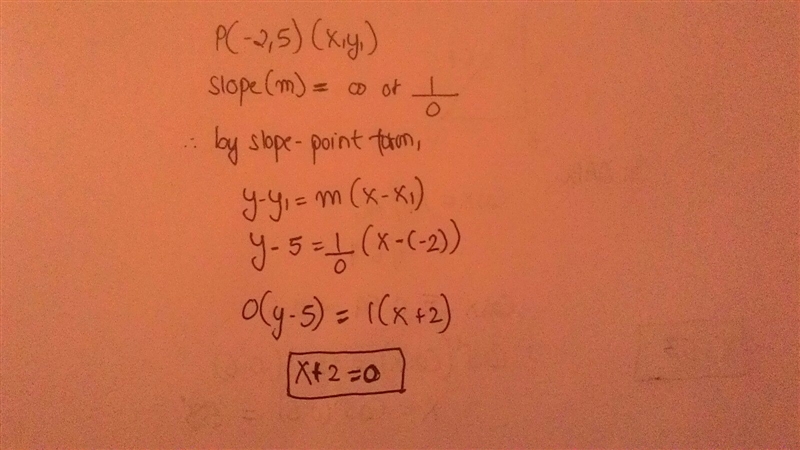 P(-2,5) (x₁y₁)
slope(m) = ∞ or 1/0
∴ by slope-point form,
y-y₁ = m(x-x₁)
y-5 = 1/0 (x-(-2))
0(y-5) = 1(x+2)
x+2=0